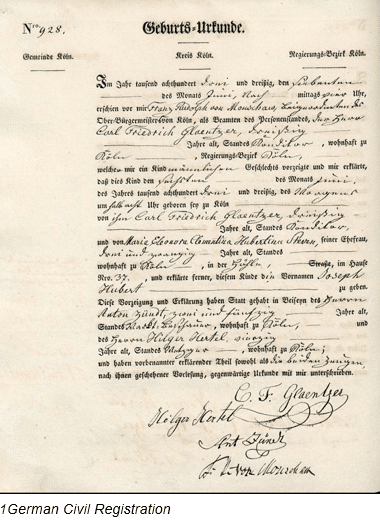 Nro. 928.
Geburts-Urkunde.
Gemeinde Köln.
Kreis Köln.
Regierungs-Bezirk Köln.
Im Jahr tausend achthundert drei und dreißig, den siebenten
des Monats Juni, Nach mittags vier Uhr,
erschien vor mir Franz Rudolph von Monschaw, Beigeordneten
Ober-Bürgermeister von Köln, als Beamten des Personenstandes, der Herr
Carl Friedrich Glaentzer, dreißig
Jahre alt, Standes Konditor, wohnhaft zu
Köln, Regierungs-Bezirk Köln,
welcher mir ein Kind männlichen Geschlechts vorzeigte und mir erklärte,
daß dies Kind den des Monats Juni,
des Jahres tausend achthundert drei und dreißig, des Morgens
um halb acht Uhr geboren sey zu Köln
von ihm Carl Friedrich Glaentzer, dreißig
Jahre alt, Standes Konditor,
und von Maria Eleonora Clementina Hubertina seiner Ehefrau,
drei und zwanzig Jahre alt, Standes
wohnhaft zu Köln, in der Straße, im Hause
Nro. 37. und erklärte ferner, diesem Kinde die Vornamen Joseph
Hubert zu geben.
Diese Vorzeigung und Erklärung haben Statt gehabt in Beiseyn des Herrn
Anton Zündt, zwei und fünfzig Jahre alt,
Standes wohnhaft zu Köln, und
des Herrn Hilger Hertel, vierzig
Jahre alt, Standes Metzger, wohnhaft zu Köln;
und haben vorbenannter erklärender Theil sowohl als die beiden Zeugen
nach ihnen geschehener Vorlesung, gegenwärtige Urkunde mit mir unterschrieben.
C. F. Glaentzer
Hilger Hertel
Ant Zündt
von Monschaw
1German Civil Registration